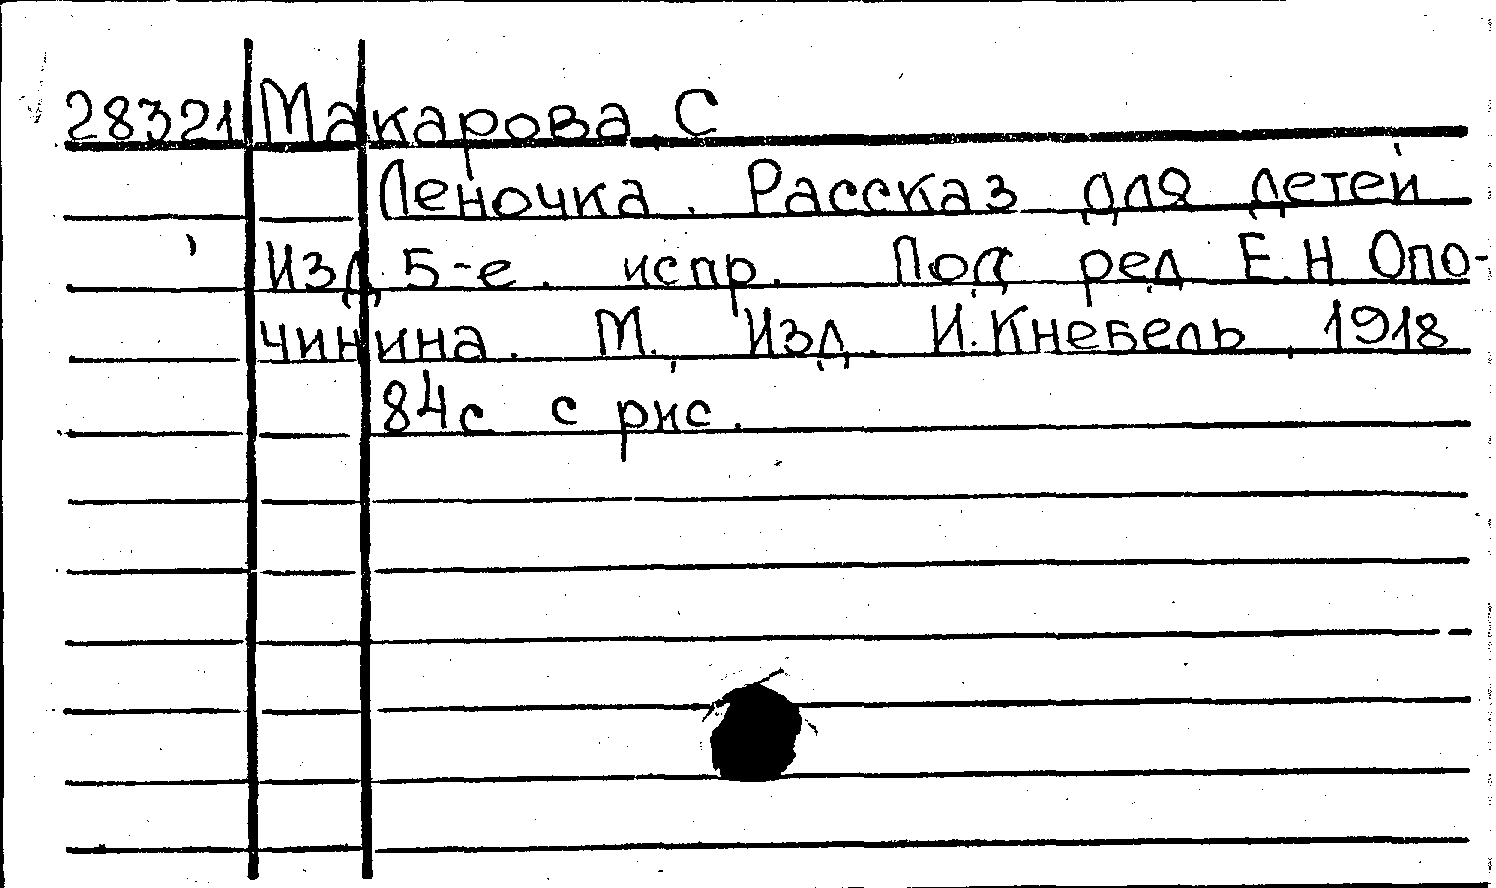 28321 Макарова С
Леночка. Рассказ для детей
Изд 5-е. испр. Под ред Е.Н Опо-
чинина. М. Изд. И. Кнебель, 1918
84с с рис.